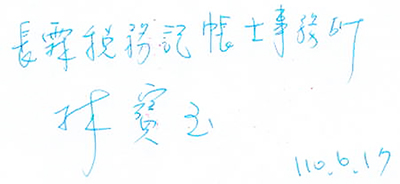 長霖稅務記帳士事務所
林寶玉
110.6.17